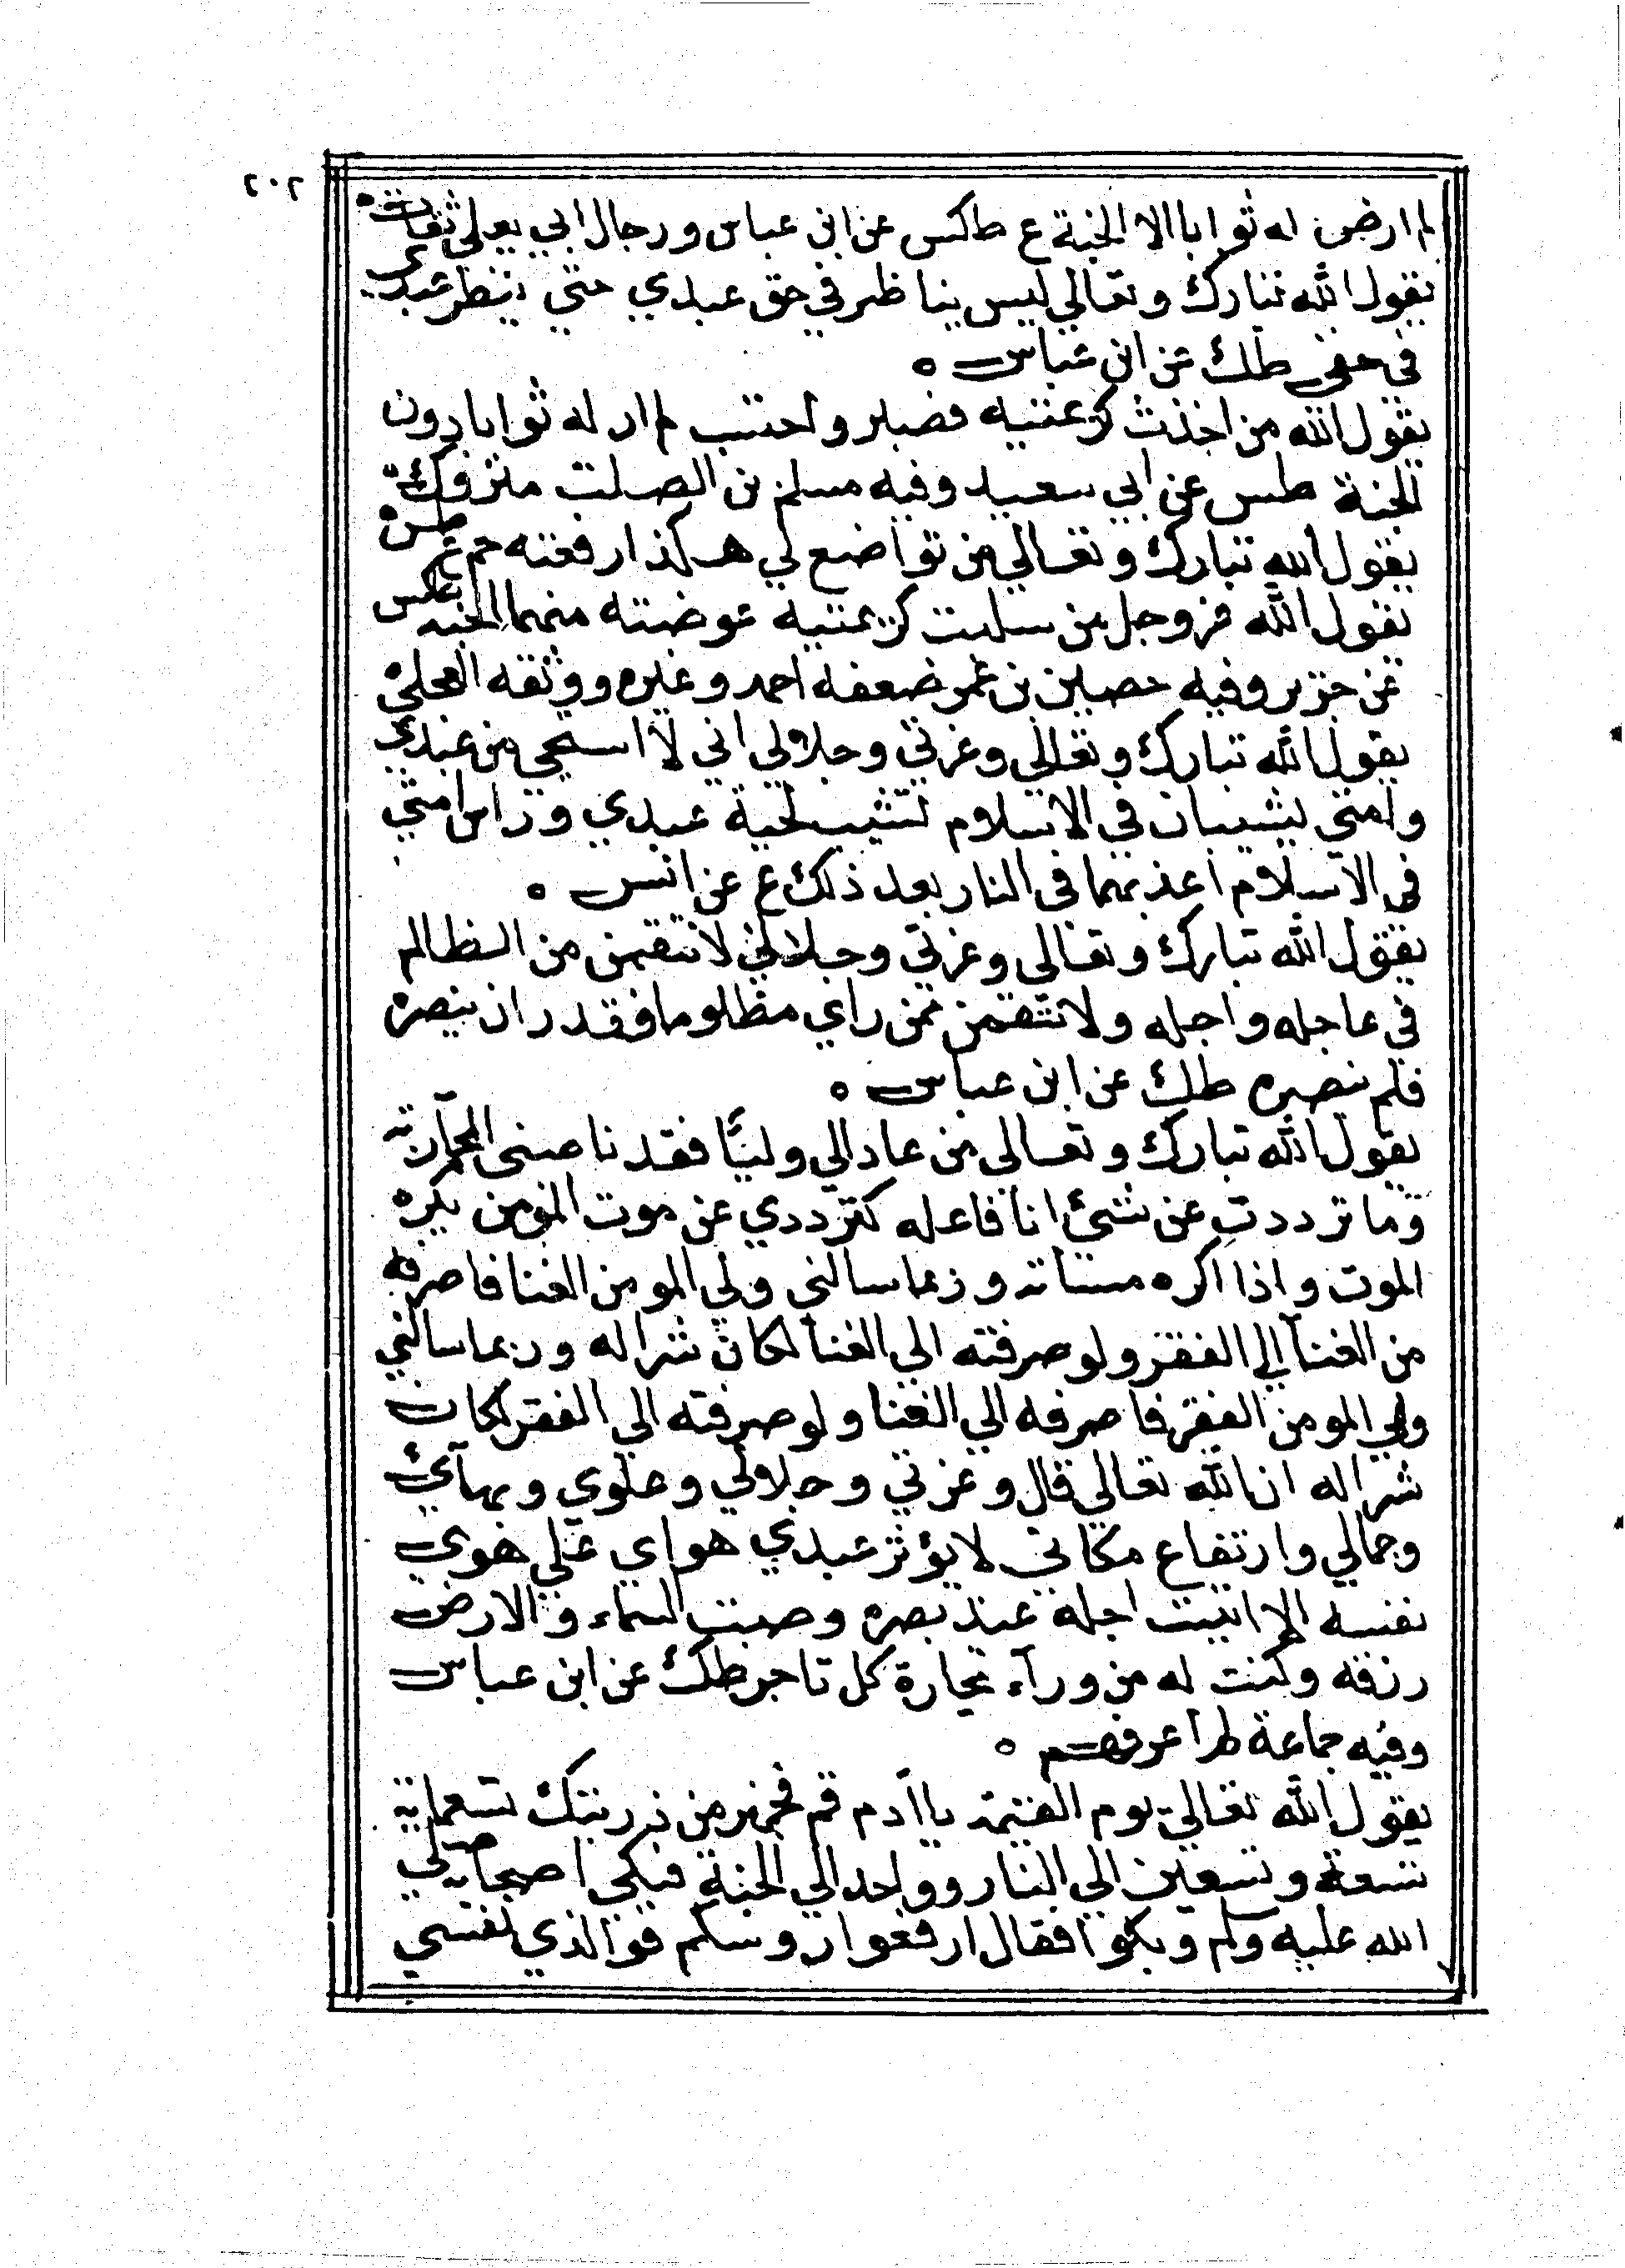 ٢٠٢
لم ارض له ثوابا الا الجنة ع طكس عن ابن عباس ورجال ابي يعلي ثقات ه
يقول الله تبارك وتعالي ليس بناظر في حق عبدي حتي ينظر عبدي
في حقي طك عن ابن عباس ه
يقول الله من اخذت كريمتيه فصبر واحتسب لم ار له ثوابا دون
الجنة طس عن ابي سعيد وفيه مسلم بن الصلت متروك
يقول الله تبارك وتعالي من تواضع لي هكذا رفعته حم ع طس ه
يقول الله عز وجل من سلبت كريمتيه عوضته منهما الجنة طكس
عن جرير وفيه حصين بن عمر ضعفه احمد وغيره ووثقه العجلي ه
يقول الله تبارك وتعالي وعزتي وجلالي اني لا استحيي من عبدي
وامتي يشيبان في الاسلام لتشيب لحية عبدي وراس امتي
في الاسلام اعذبهما في النار بعد ذلك ع عن انس ه
يقول الله تبارك وتعالي وعزتي وجلالي لانتقمن من الظالم
في عاجله واجله ولانتقمن ممن راي مظلوما فقدر ان ينصره
فلم ينصره طك عن ابن عباس ه
يقول الله تبارك وتعالى من عادا لي وليّا فقد ناصبني المحاربة
وما ترددت عن شئ انا فاعله كترددي عن موت المومن يكره
الموت واذا اكره مساته وربما سالني ولي المومن الغنا فاصرفه
من الغنآ الي الفقر ولو صرفته الي الغنا لكان شرا له وربما سالني
ولي المومن الفقر فاصرفه الي الغنا ولو صرفته الي الفقر لكان
شرا له ان الله تعالي قال وعزتي وجلالي وعلوي وبهآئ
وجمالي وارتفاع مكاني لا يؤثر عبدي هواي علي هوي
نفسه الا اثبت اجله عند بصره وضمنت السماء والارض
رزقه وكنت له من ورآء تجارة كل تاجر طك عن ابن عباس
وفيه جماعة لم اعرفهم ه
يقول الله تعالي يوم القيمة يا آدم قم فجهز من ذريتك تسعماية
تسعة وتسعين الي النار وواحد الي الجنة فبكي اصحابه صلي
الله عليه وسلم وبكوا فقال ارفعوا روسكم فوالذي نفسي